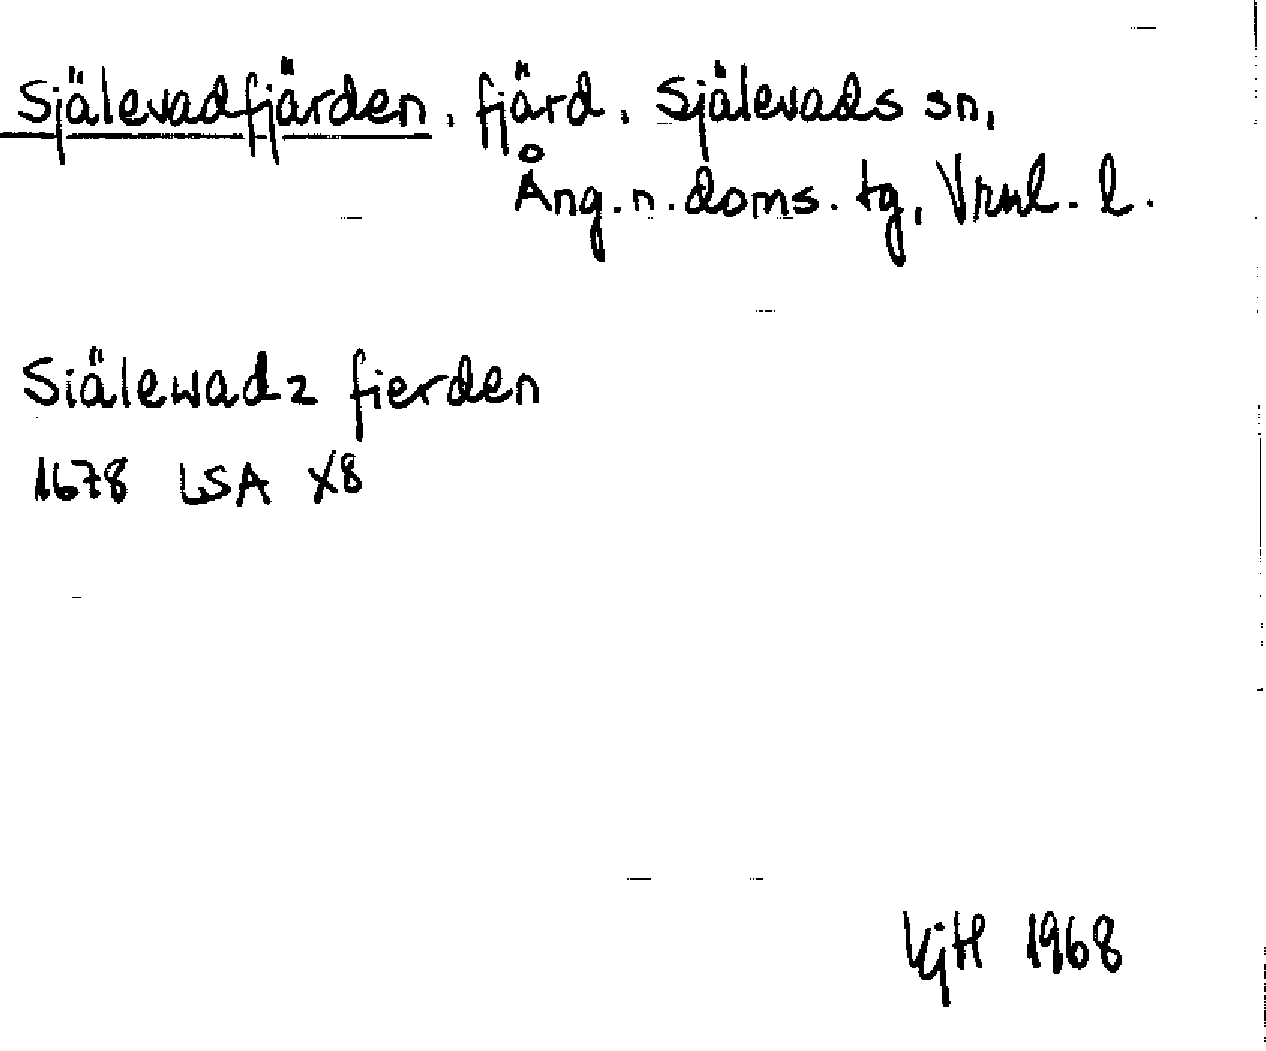 Själevadfjärden, fjärd, Själevads sn,
Ång. n. doms. tg, Vrnl. l.
Siälewadz fierden
1678 LSA X8
VjH 1968